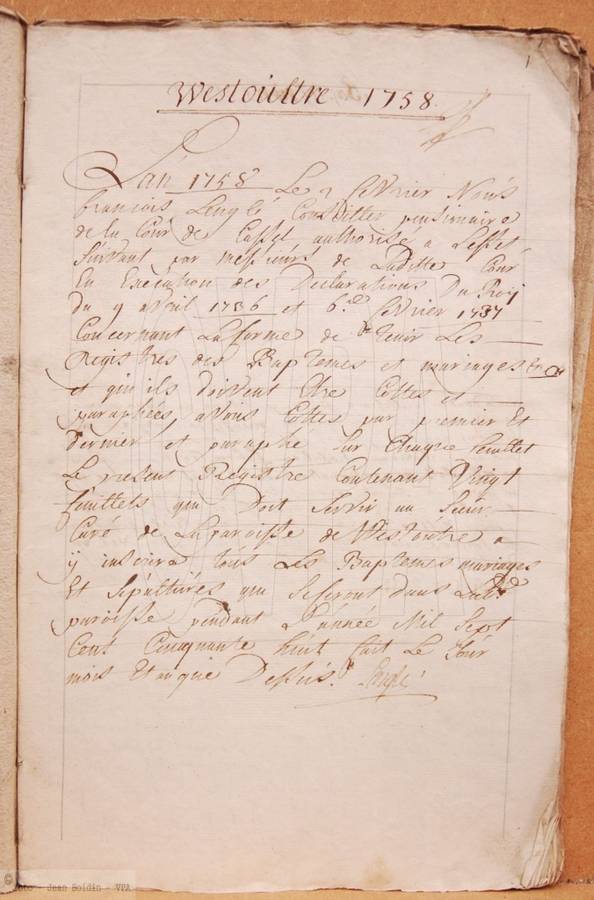 Westoustre 1758
L'an 1758 Le 7 fevrier Nous
francois Lenglé Conseiller pensionaire
de la Cour de Cassel authorisé a Leffet
Suivant par messieurs de Laditte Cour
En Execution des Declarations Du Roy
du 9 avril 1736 et 6.e fevrier 1737
Concernant La forme de tenir Les
Registres des Baptemes et mariages
et qu'ils doivent Etre Cottes et
paraphées, avons Cottes par premier Et
Dernier et paraphe Sur Chaque feuillet
Le present Registre Contenant Vingt
feuillets qui Doit Servir au Sieur
Curé de La paroisse de Westoutre a
y inscrire tous Les Baptemes mariages
Et Sepultures qui Se feront dans Lad.
paroisse pendant L'année Mil Sept
Cent Cinquante huit fait Le Jour
mois Et an que Dessus. Lenglé
Foto - Jean Boidin - VPA